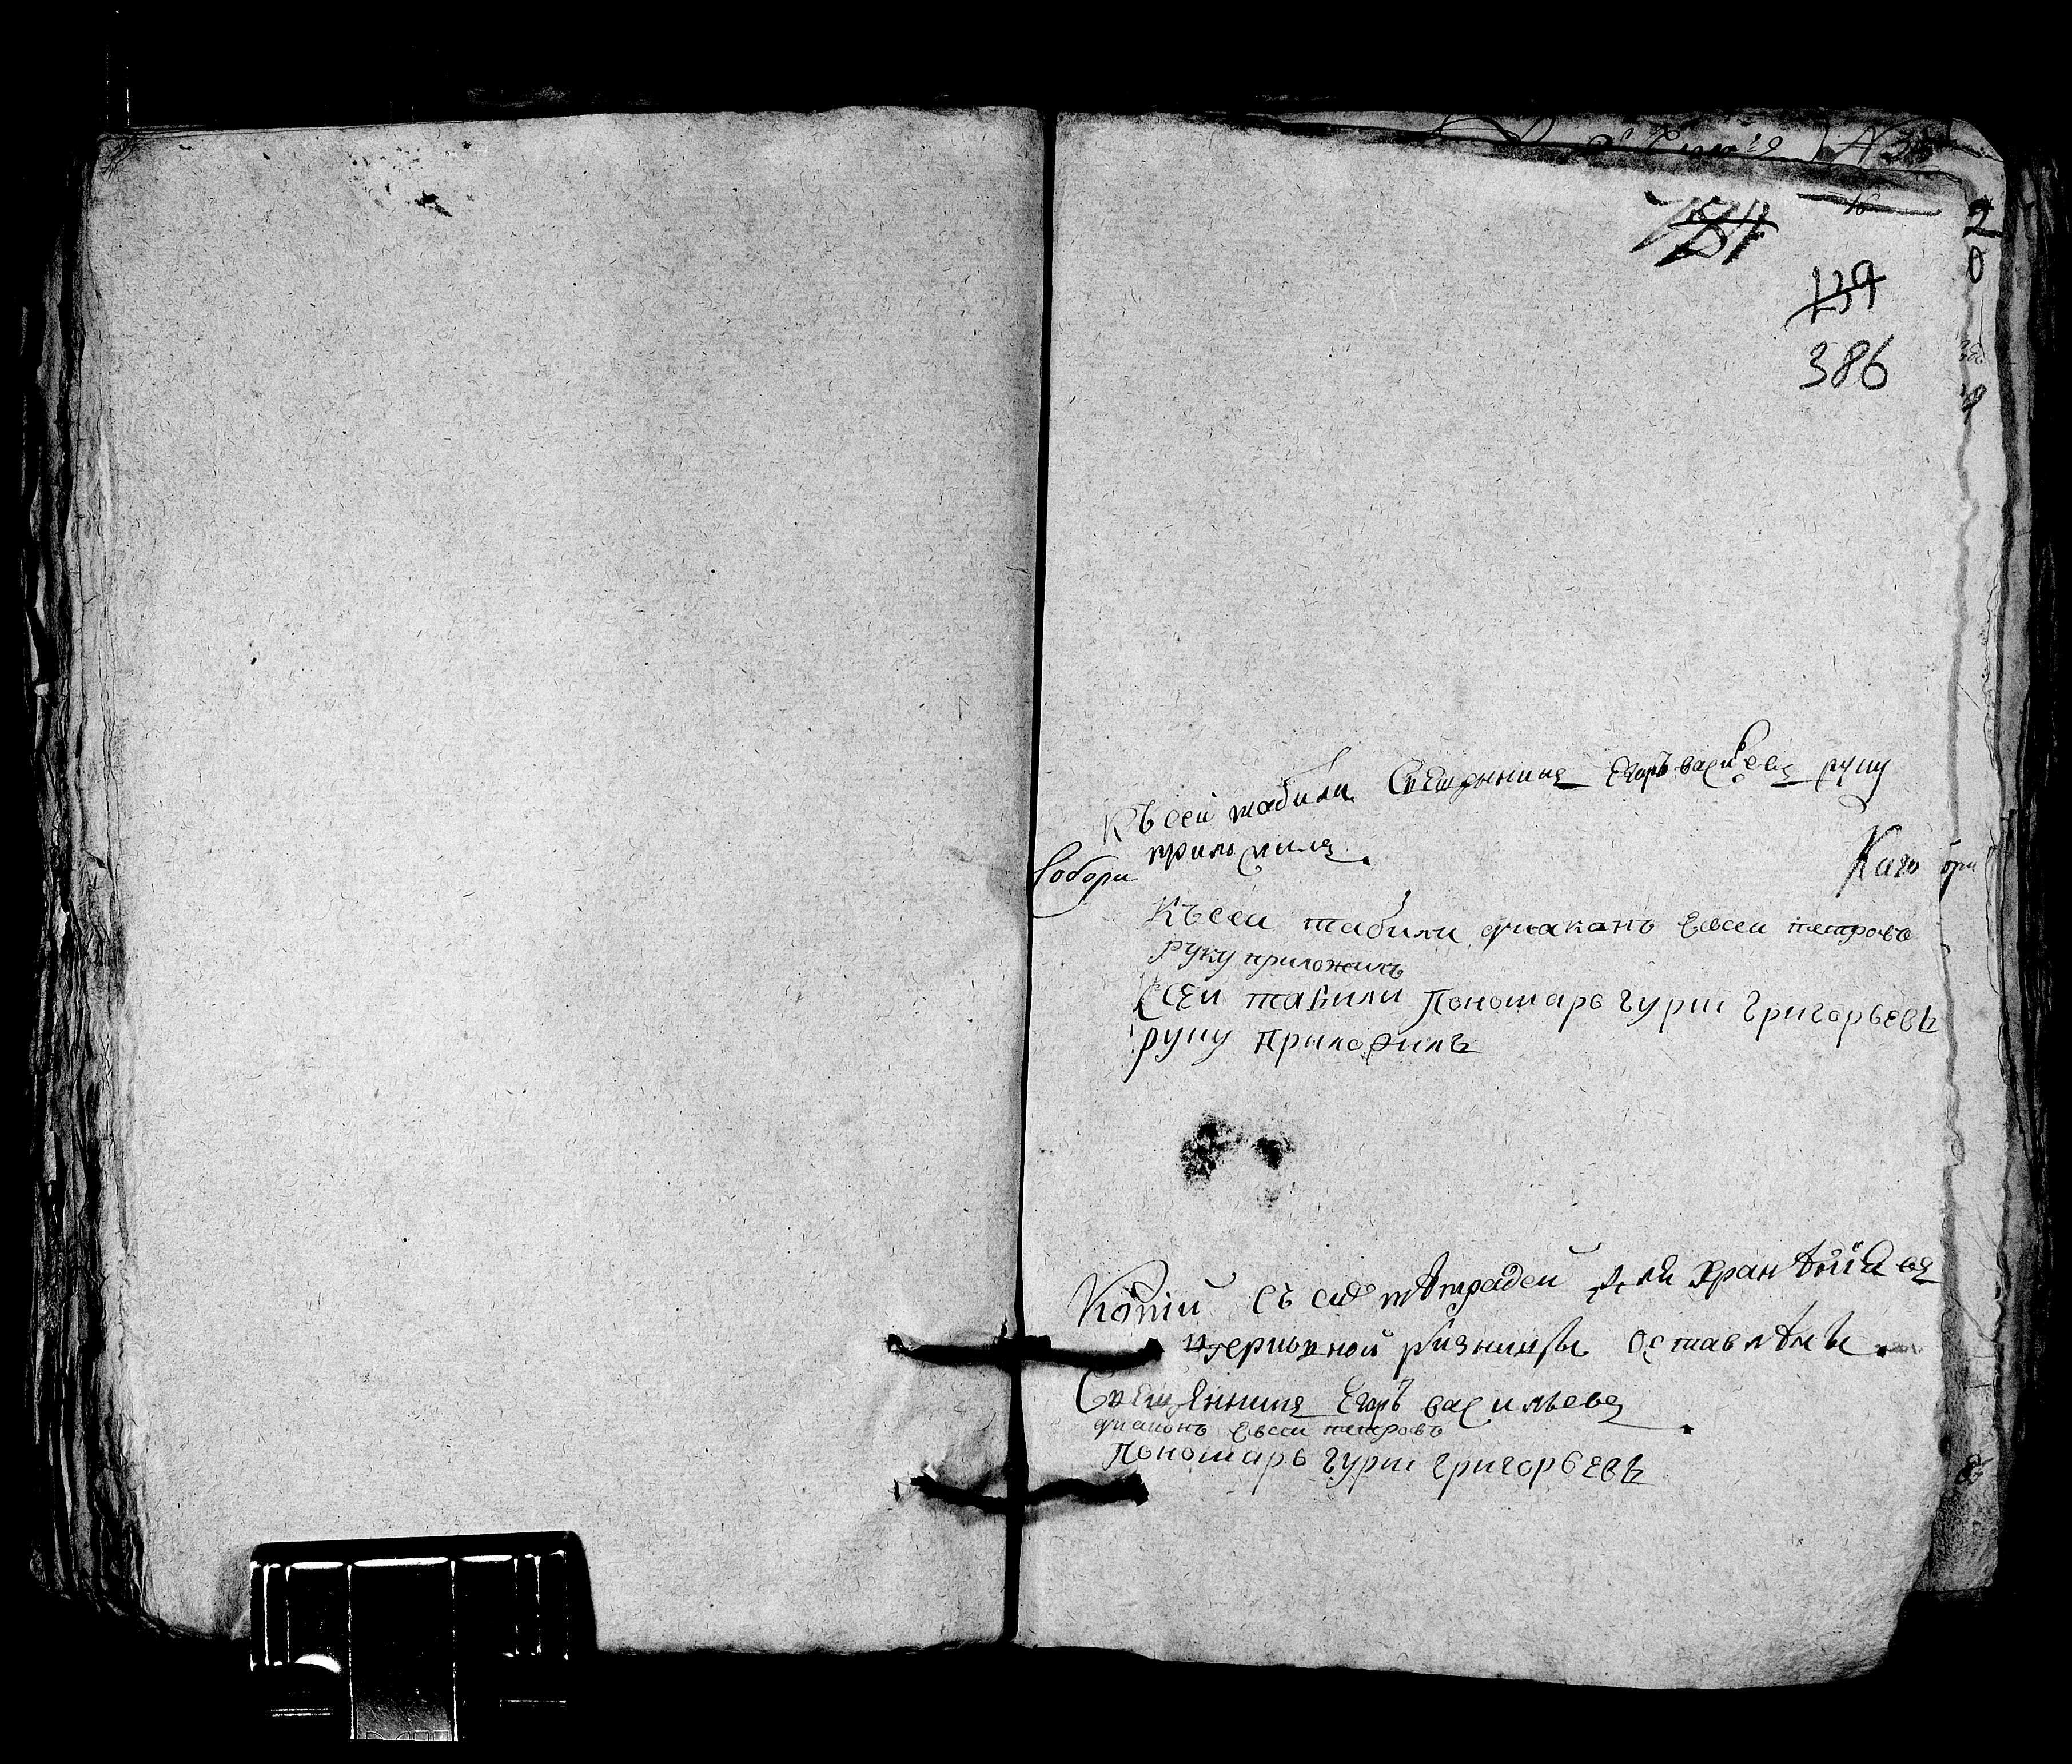 134
139
386
Къ сей табили Священникъ Егоръ васильевъ руку
приложилъ.
Собори
Като
Къ сеи табили диаканъ Евсеи петровъ
руку приложилъ
Ксеи табили Пономарь гурии григорьевъ
руку приложилъ
Копіи съ сие тетрадеи для хранѣнїя въ
церковной ризницы оставлѣнъ.
Священникъ Егоръ васильевъ
диаконъ Евсеи петровъ
Пономарь гурии григорьевъ